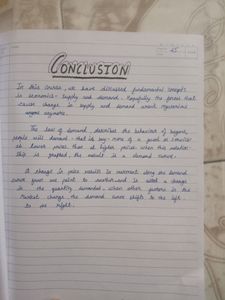 25
CONCLUSION
In this course, we have discussed fundamental concepts
in economics - supply and demand. Hopefully the forces that
cause change in supply and demand aren't mysterious
anyone anymore.
The law of demand, describes the behaviour of buyers,
people will demand - that is buy - more of a good or service
at lower prices than at higher prices, when this relation
ship is graphed, the result is a demand curve.
A change in price results in movement along the demand
curve from one point to another and is called a change
in the quantity demanded, when other factors in the
market change the demand curve shifts to the left
to the right.